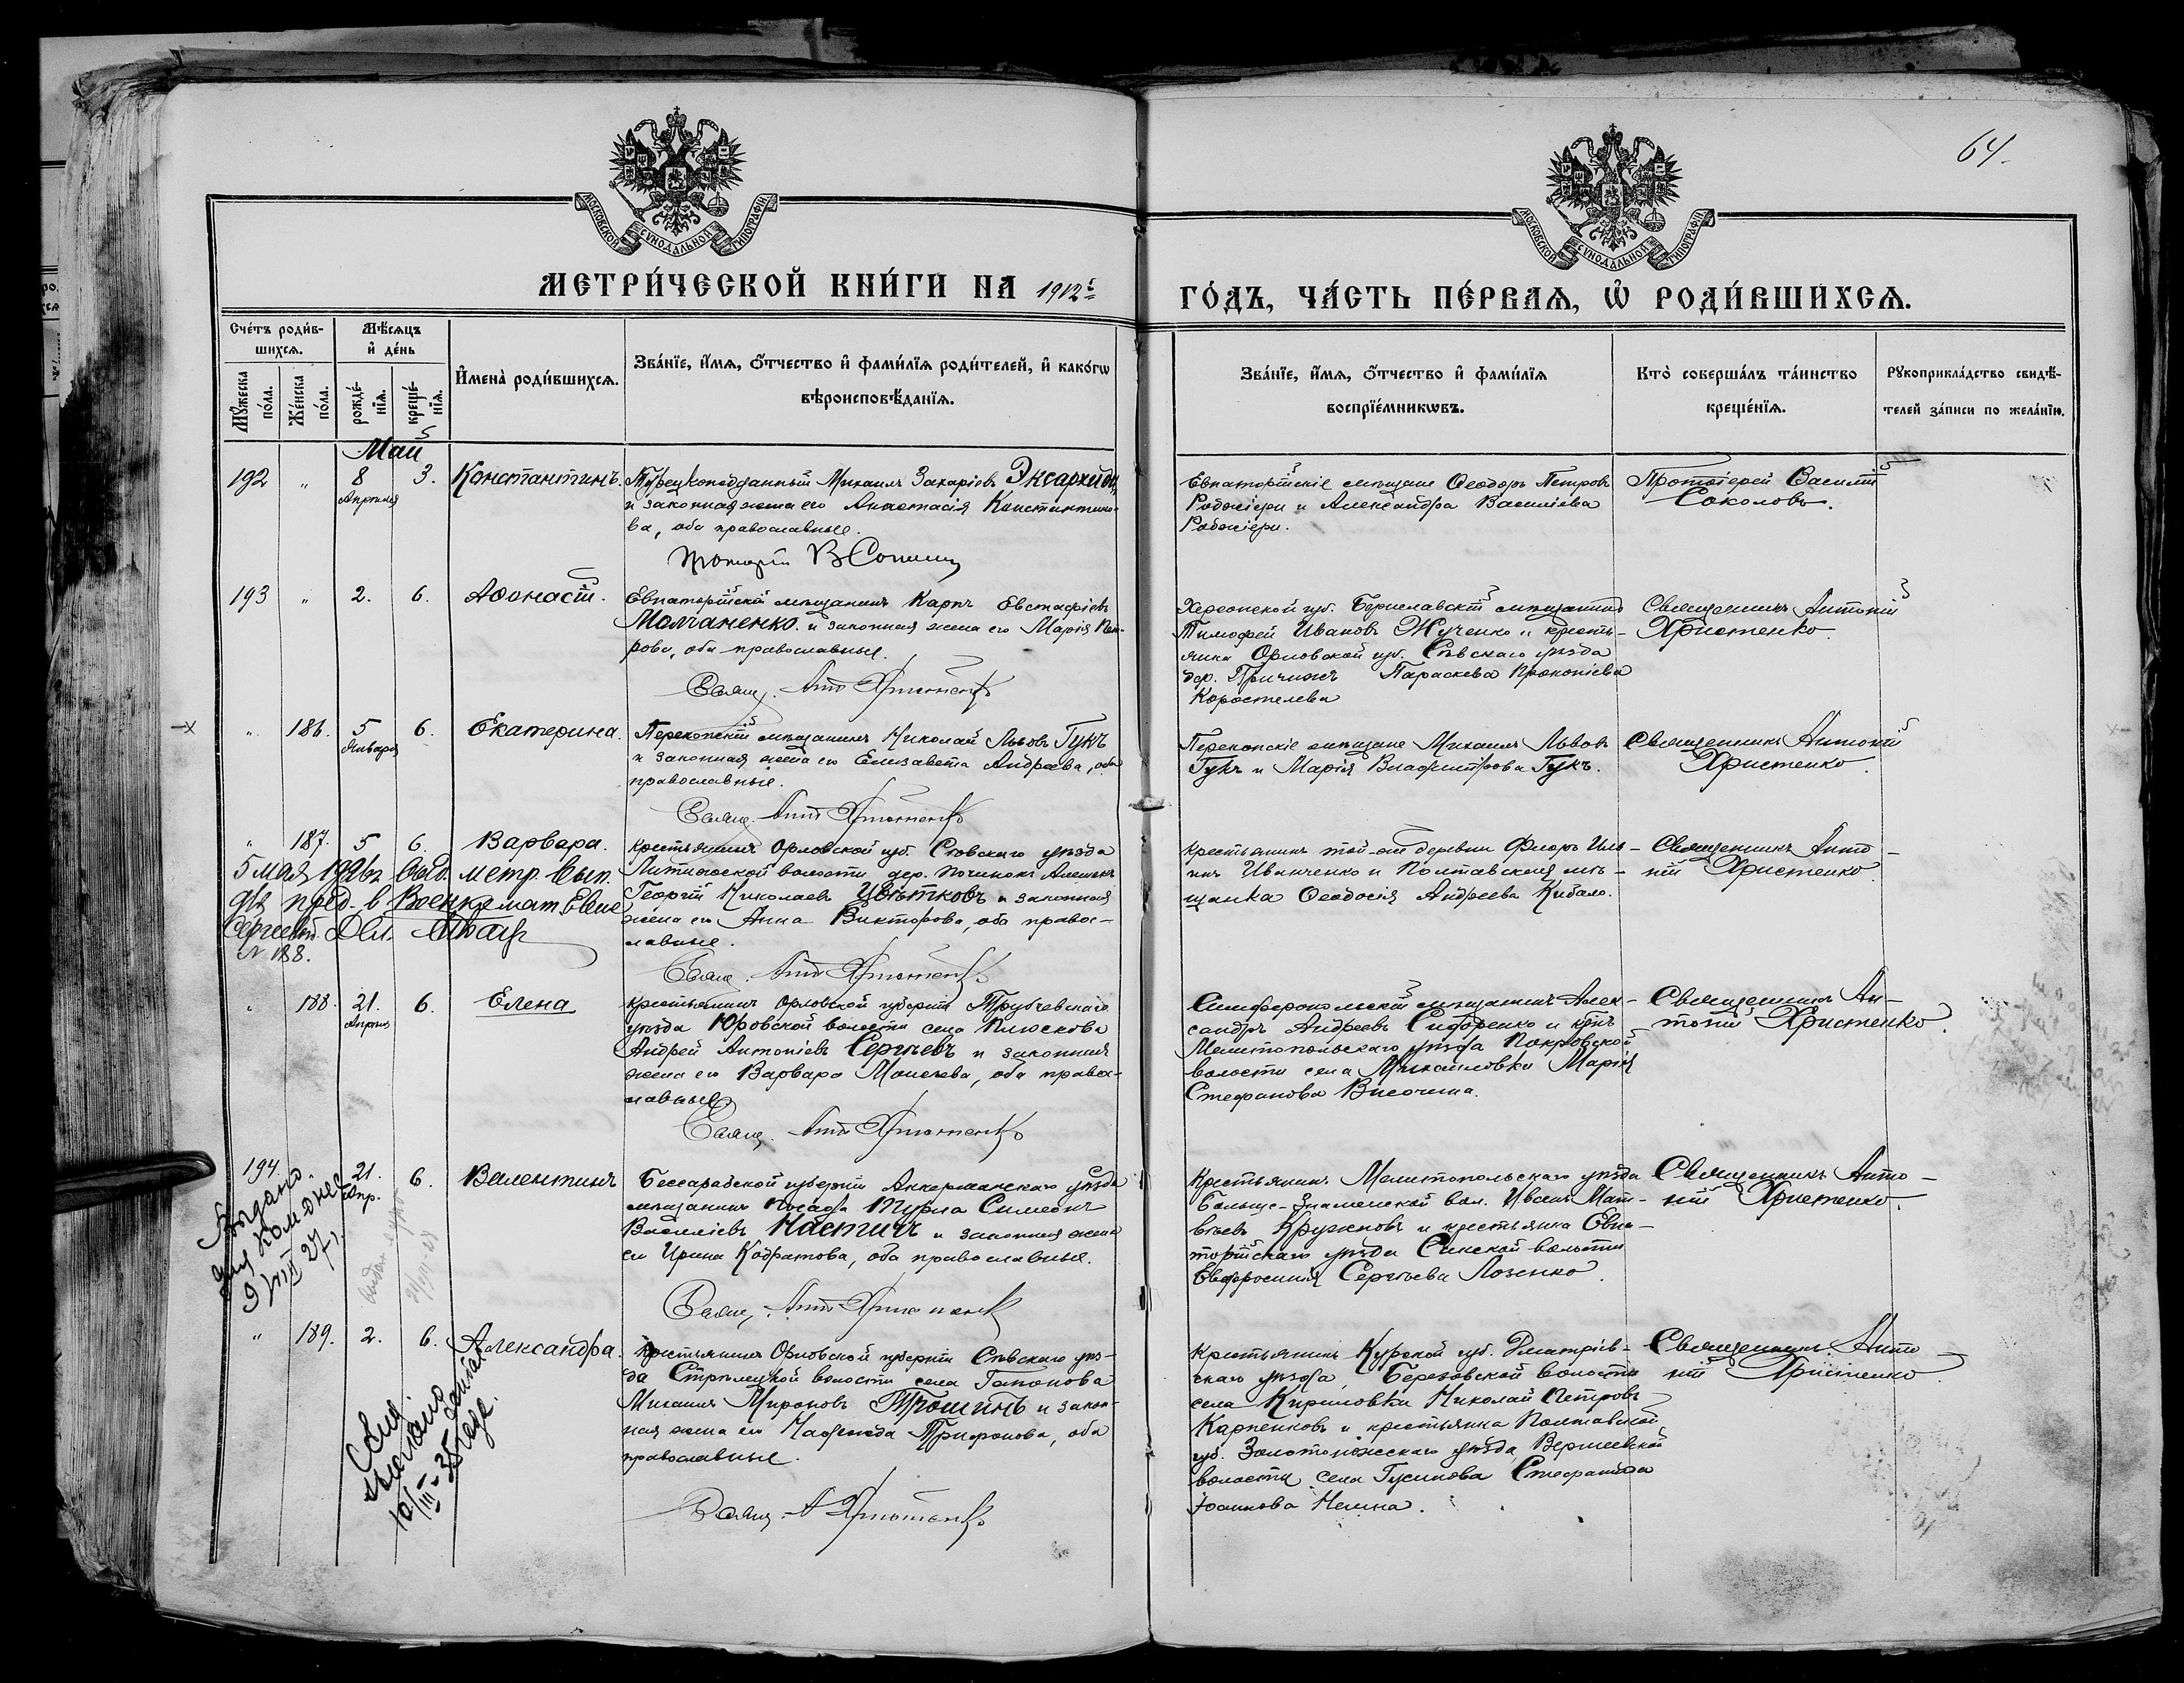 64.
МОСКОВСКОЙ СУНОДАЛЬНОЙ ТИПОГРАФІИ
МОСКОВСКОЙ СУНОДАЛЬНОЙ ТИПОГРАФІИ
МЕТРИ́ЧЕСКОЙ КНИ́ГИ НА 1912 г.
ГО́ДЪ, ЧА́СТЬ ПЕ́РВАѦ, Ѡ РОДИ́ВШИХСѦ.
Сче́тъ роди́в-
шихсѧ.
Мꙋ́жеска по́ла.
Же́нска по́ла.
Мѣ́сѧцъ
и де́нь
рожде́-
нїѧ.
креще́-
нїѧ.
Имена̀ роди́вшихсѧ.
Зва́нїе, и́мѧ, о́тчество и фами́лїѧ роди́телей, и како́гѡ
вѣроисповѣ́данїѧ.
Зва́нїе, и́мѧ, о́тчество и фами́лїѧ
воспрїе́мникѡвъ.
Кто̀ соверша́лъ та́инство
креще́нїѧ.
Рꙋкоприкла́дство свидѣ́-
телей за́писи по жела́нїю.
Май
192 " 8 Апрѣля 3. Константинъ.
Турецкоподданный Михаилъ Захаріевъ
и законная жена его Анастасія Константино-
ва, оба православные.
Евпаторійскіе мѣщане Ѳеодоръ Петровъ
и Александра Васильева
Протоіерей Василій
Соколовъ.
193 " 2. 6. Аѳонасій.
Евпаторійскій мѣщанинъ Карпъ Евстафіевъ
Молчаненко и законная жена его Марія Пет-
рова, оба православные.
Свящ. Ант. Христенко
Херсонской губ. Бериславскій мѣщанинъ
Тимофей Ивановъ Жученко и кресть-
янка Орловской губ. Сѣвскаго уѣзда
дер. Параскева Прокопіева
Коростелева
Священникъ Антоній
Христенко.
" 186. 5 Января 6. Екатерина.
Перекопскій мѣщанинъ Николай Львовъ Гукъ
и законная жена его Елизавета Андреева, оба
православные.
Свящ. Ант. Христенко
Перекопскіе мѣщане Михаилъ Львовъ
Гукъ и Марія Владимірова Гукъ.
Священникъ Антоній
Христенко.
" 187. 5 6. Варвара.
крестьянинъ Орловской губ. Сѣвскаго уѣзда
волости дер. Починокъ
Георгій Николаевъ Цвѣтковъ и законная
жена его Анна Викторова, оба правос-
лавные.
Свящ. Ант. Христенко
крестьянинъ той-же деревни Флоръ
Иванченко и Полтавская мѣ-
щанка Ѳеодосія Андреева
Священникъ Анто-
ній Христенко
5 мая выд. метр. вып.
для пред. в Военкомат Елене
Сергеевой
№ 188.
" 188. 21. Апрѣля 6. Елена
крестьянинъ Орловской губерніи Трубчевскаго
уѣзда Юровской волости села Плюскова
Андрей Антоніевъ Сергѣевъ и законная
жена его Варвара Моисеева, оба правос-
лавные.
Свящ. Ант. Христенко
Симферопольскій мѣщанинъ Алек-
сандръ Андреевъ Сидоренко и
Мелитопольскаго уѣзда Покровской
волости села Михайловки Марія
Стефанова
Священникъ Ан-
тоній Христенко.
194. 21. Апр. 6. Валентинъ
Бессарабской губерніи Аккерманскаго уѣзда
мѣщанинъ Посада Симеонъ
Василіевъ Настичъ и законная жена
его Ирина Кодратова, оба православные.
Свящ. Ант. Христенко
Крестьянинъ Мелитопольскаго уѣзда
Больше-Знаменской вол. Иванъ Мат-
вѣевъ и крестьянка Евпа-
торійскаго уѣзда Сакской волости
Евфросинія Сергѣева Лозенко.
Священникъ Анто-
ній Христенко.
Выдано
для
9/VIII 27 г.
" 189. 2. 6. Александра.
крестьянинъ Орловской губерніи Сѣвскаго уѣз-
да Стрѣлецкой волости села Гапонова
Михаилъ Мироновъ Трошинъ и закон-
ная жена его Надежда Трифонова, оба
православные.
Свящ. А Христенко
крестьянинъ Курской губ. Дмитріев-
скаго уѣзда Березовской волости
села Кириловки Николай Петровъ
Карпенковъ и крестьянка Полтавской
губ. Золотоножскаго уѣзда
волости села Стефанида
Іоаннова
Священникъ Анто-
ній Христенко
10/III-35